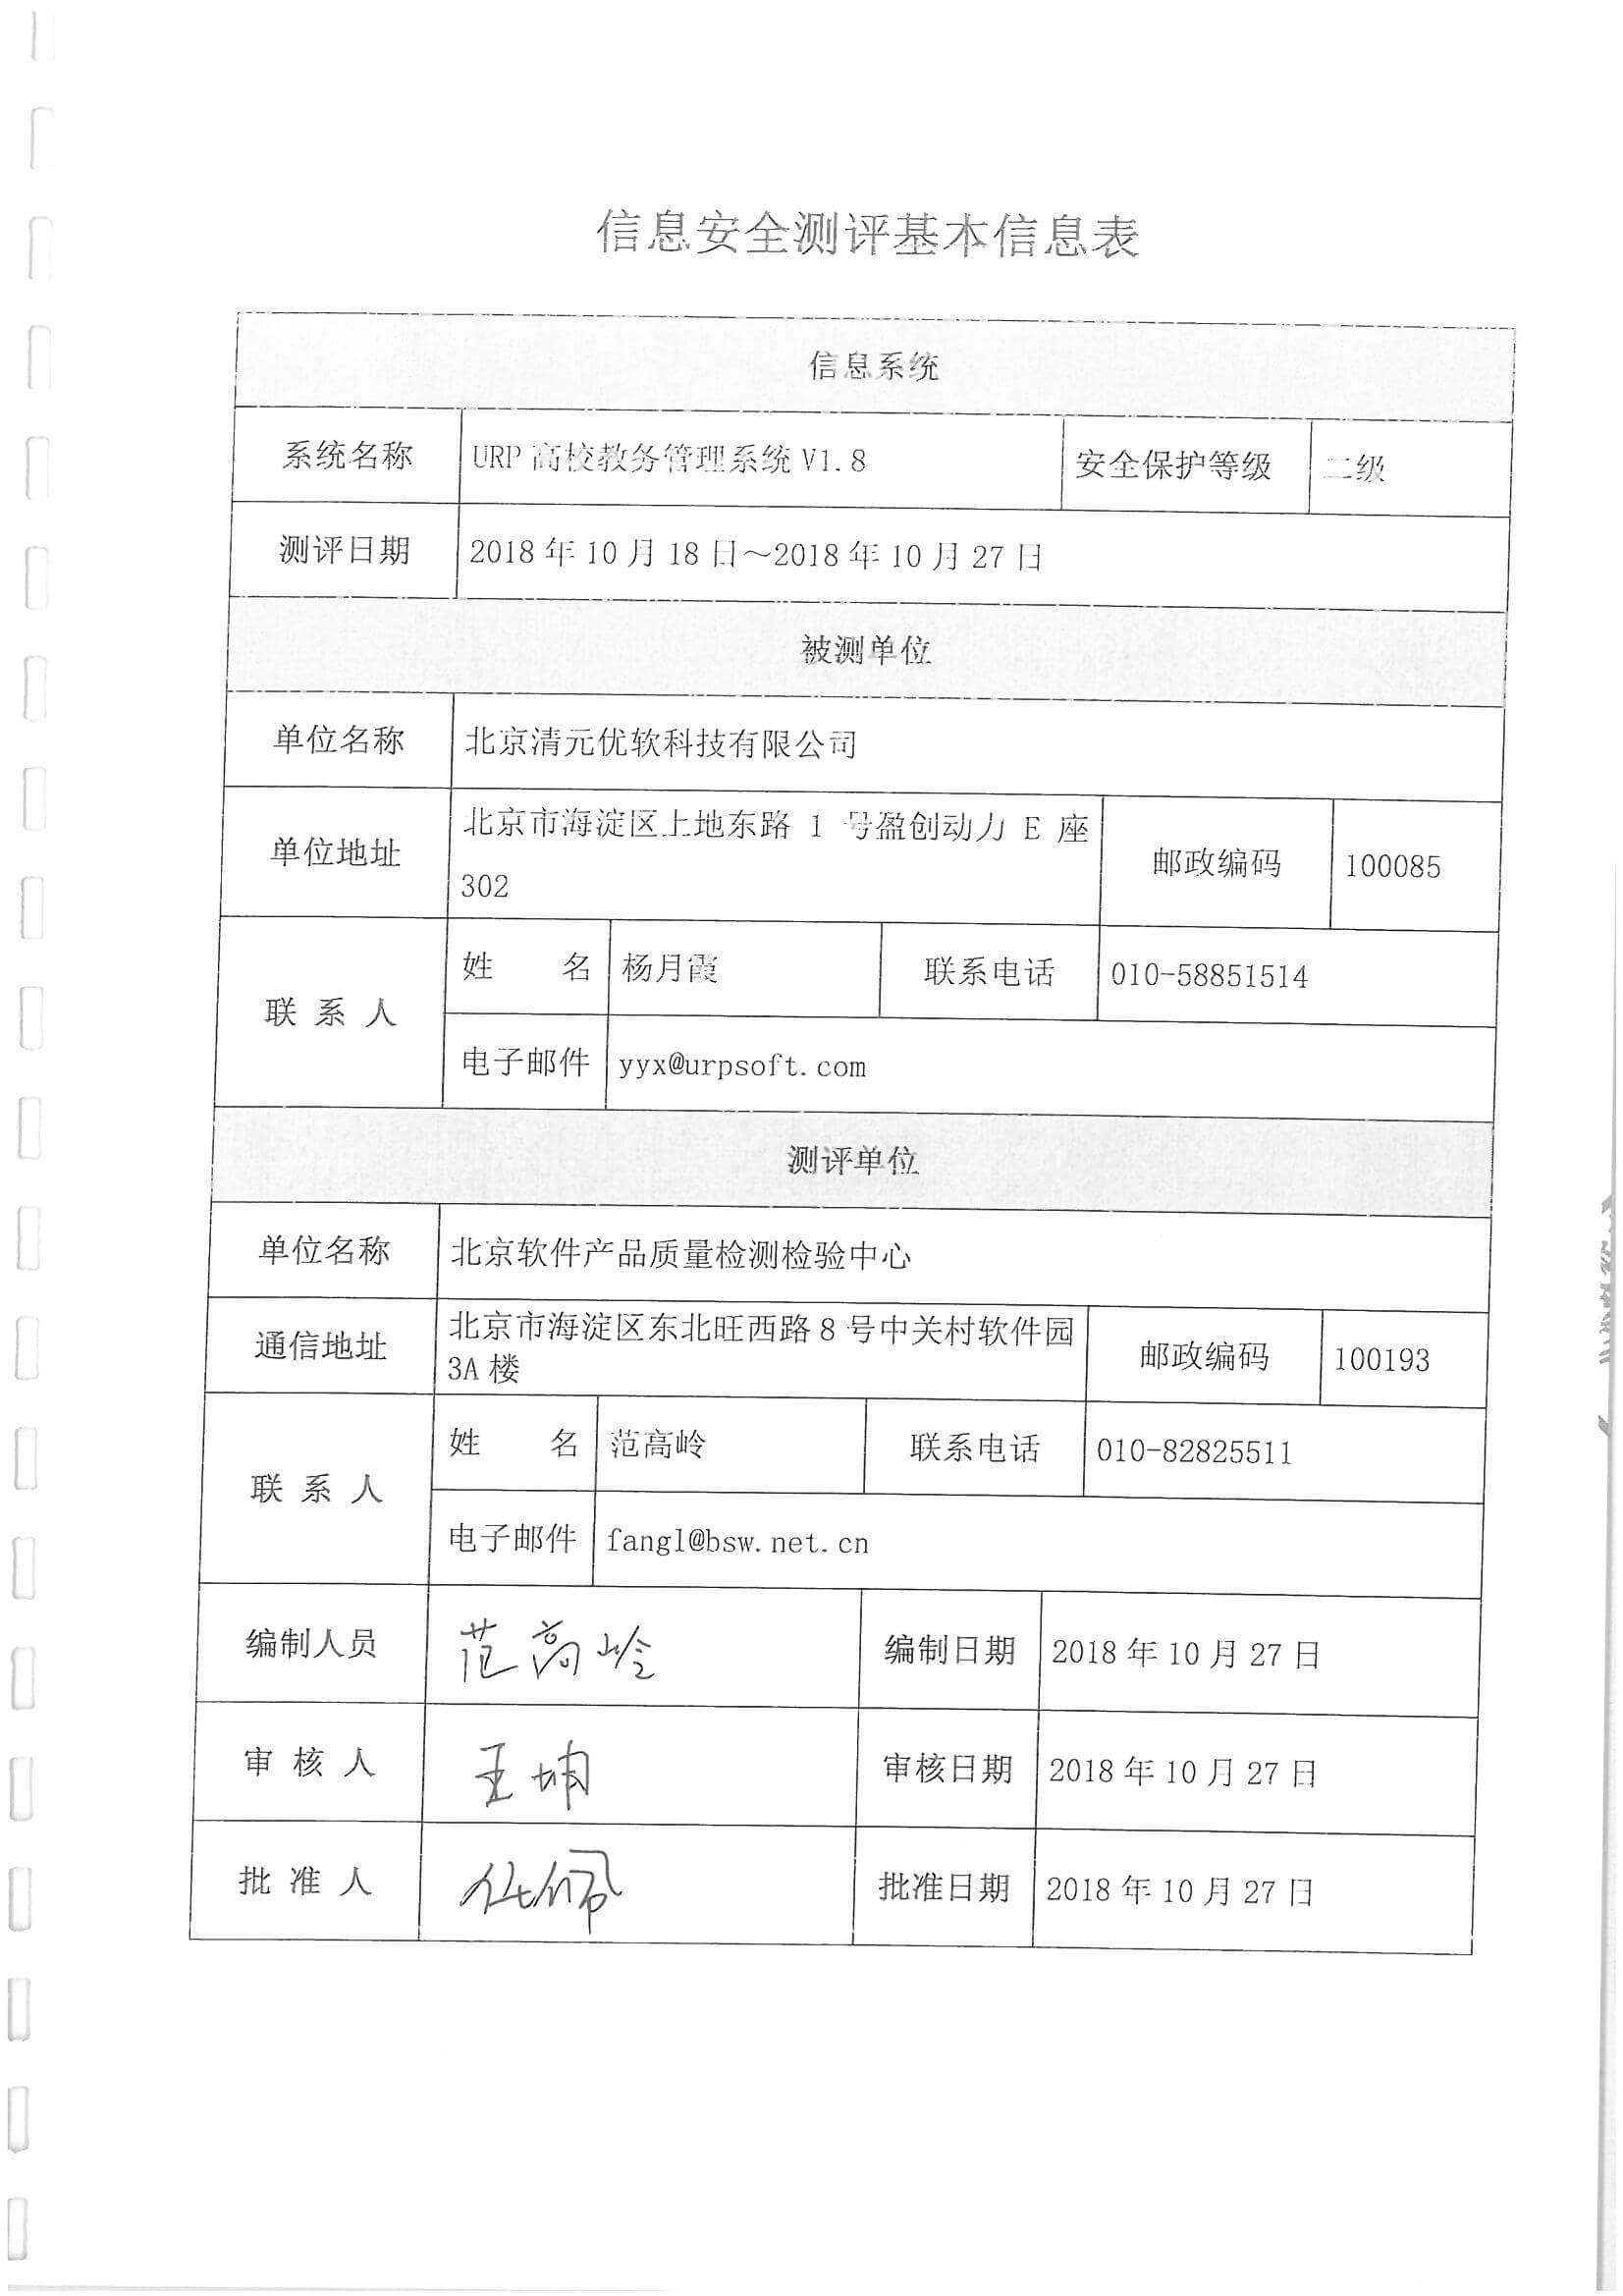 信息安全测评基本信息表
信息系统
系统名称 URP 高校教务管理系统 V1.8 安全保护等级 二级
测评日期 2018 年 10 月 18 日～2018 年 10 月 27 日
被测单位
单位名称 北京清元优软科技有限公司
单位地址 北京市海淀区上地东路 1 号盈创动力 E 座
302
邮政编码 100085
联 系 人
姓 名 杨月霞 联系电话 010-58851514
电子邮件 yyx@urpsoft.com
测评单位
单位名称 北京软件产品质量检测检验中心
通信地址 北京市海淀区东北旺西路 8 号中关村软件园
3A 楼
邮政编码 100193
联 系 人
姓 名 范高岭 联系电话 010-82825511
电子邮件 fangl@bsw.net.cn
编制人员 范高岭 编制日期 2018 年 10 月 27 日
审 核 人 王坤 审核日期 2018 年 10 月 27 日
批 准 人 批准日期 2018 年 10 月 27 日